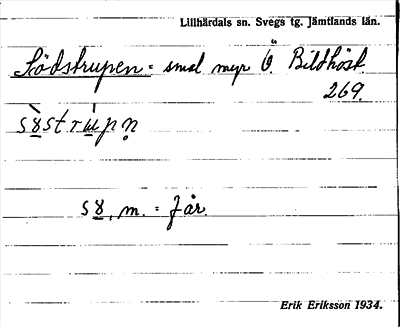 Lillhärdals sn. Svegs tg. Jämtlands län.
Södstrupen = smal myr Ö. Bildhöst.
269.
sȣstrupn̥
sȣ, m. = får.
Erik Eriksson 1934.